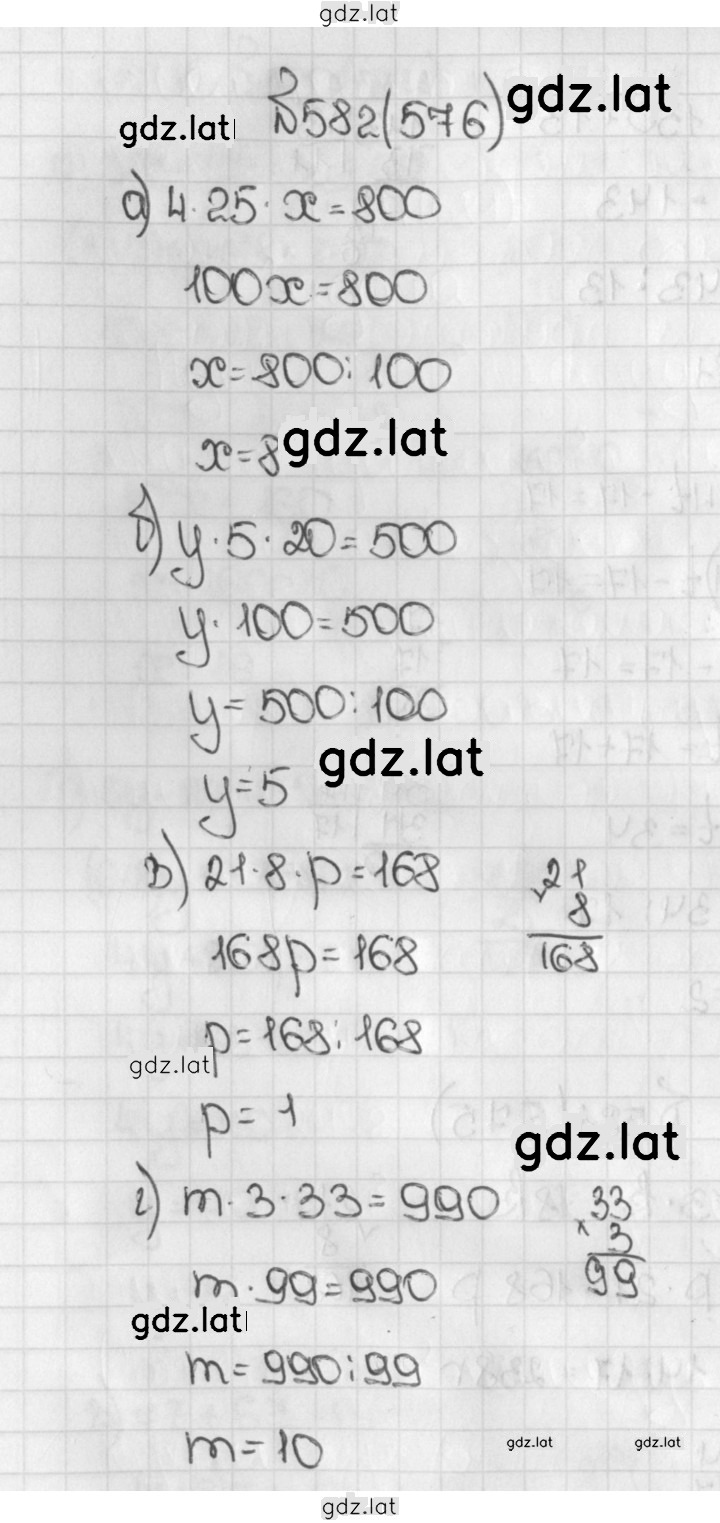 gdz.lat
№582(576) gdz.lat
gdz.lat
а) 4·25·x=800
100x=800
x=800:100
x=8 gdz.lat
б) y·5·20=500
y·100=500
y=500:100
gdz.lat
y=5
в) 21·8·p=168
21
× 8
168
168p=168
p=168:168
gdz.lat
p=1
gdz.lat
г) m·3·33=990
33
× 3
99
m·99=990
gdz.lat
m=990:99
m=10
gdz.lat gdz.lat
gdz.lat